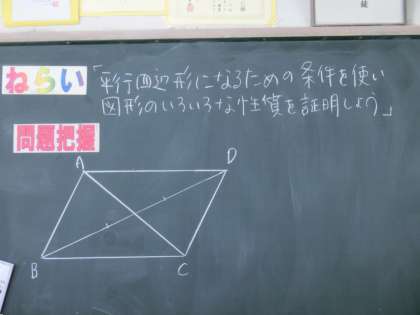 ねらい「平行四辺形になるための条件を使い
図形のいろいろな性質を証明しよう」
問題把握
A
D
B
C